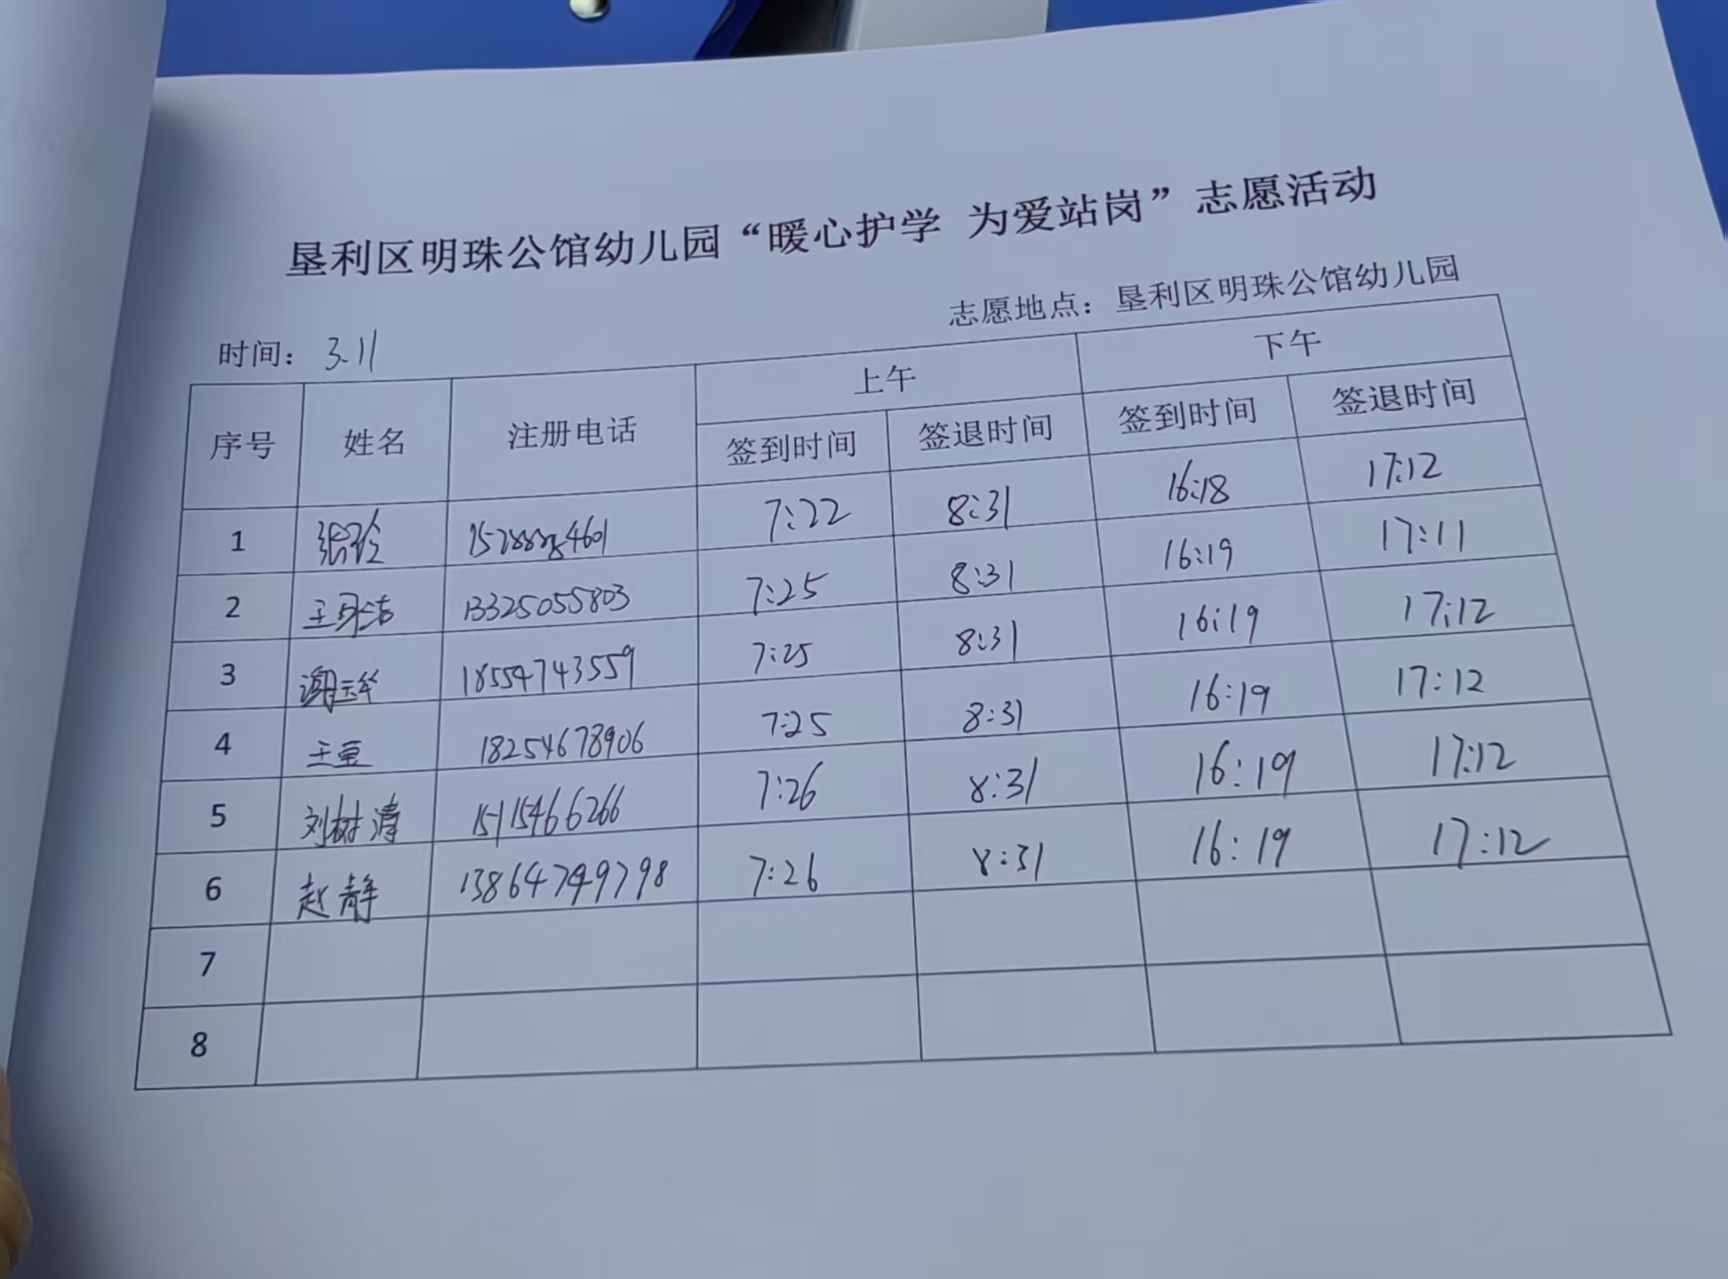 垦利区明珠公馆幼儿园“暖心护学 为爱站岗”志愿活动
时间：3.11 志愿地点：垦利区明珠公馆幼儿园
序号 姓名 注册电话 上午 下午
签到时间 签退时间 签到时间 签退时间
1 张玲 7:22 8:31 16:18 17:12
2 13325055803 7:25 8:31 16:19 17:11
3 18554743559 7:25 8:31 16:19 17:12
4 18254678906 7:25 8:31 16:19 17:12
5 刘树涛 15115466266 7:26 8:31 16:19 17:12
6 赵静 7:26 8:31 16:19 17:12
7
8